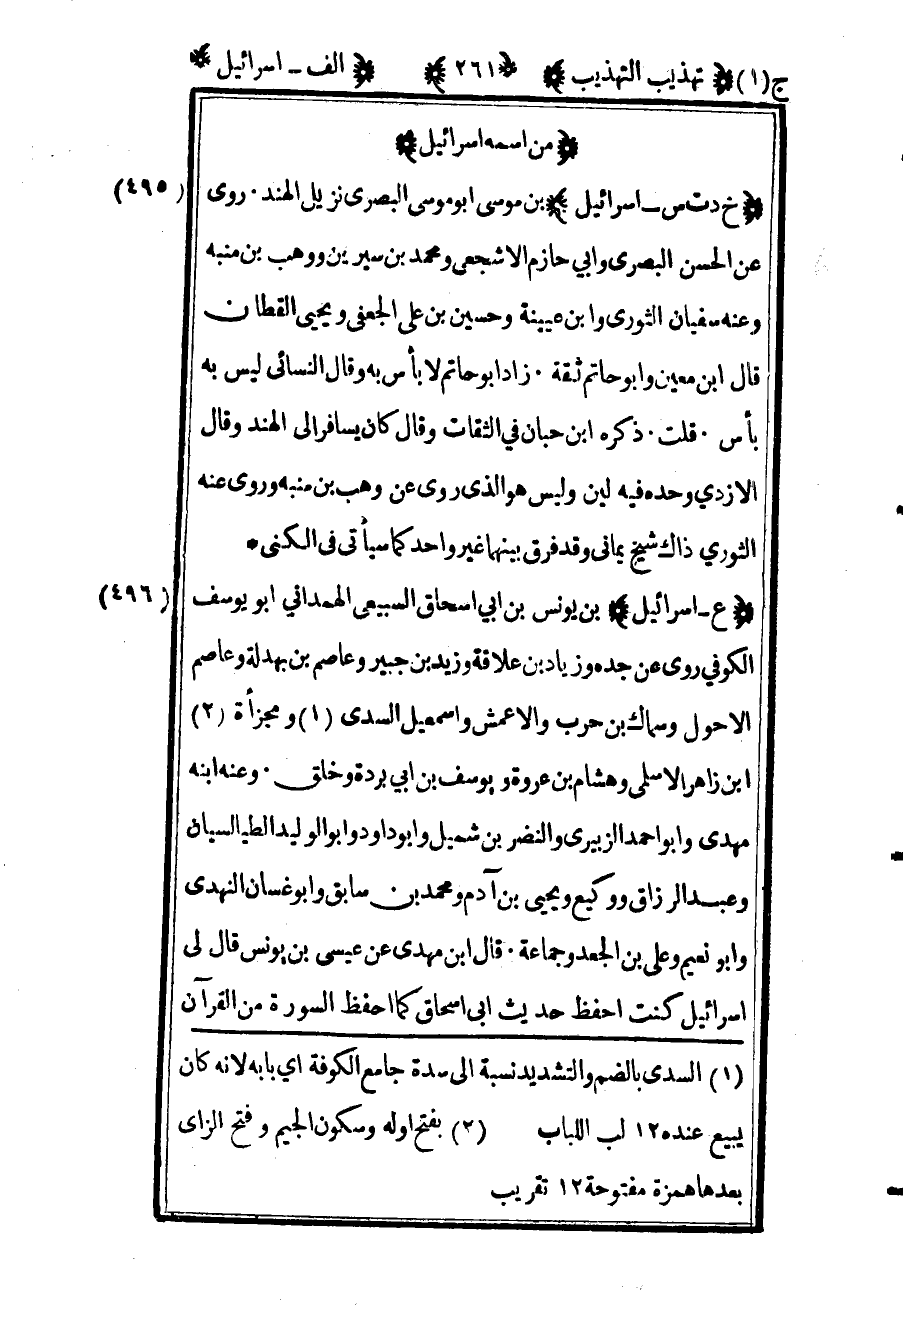 ج(١) ﴿ تهذيب التهذيب ﴾ ﴿٢٦١﴾ ﴿ الف ــ اسرائيل ﴾
﴿ من اسمه اسرائيل ﴾
(٤٩٥) ﴿ خ دت س ــ اسرائيل ﴾ بن موسى ابو موسى البصرى نزيل الهند ٠ روى
عن الحسن البصرى وابي حازم الاشجعى ومحمد بن سيرين ووهب بن منبه
وعنه سفيان الثورى وابن عيينة وحسين بن على الجعفى ويحيى القطان
قال ابن معين وابو حاتم ثقة ٠ زاد ابو حاتم لا بأس به وقال النسائى ليس به
بأس ٠ قلت ٠ ذكره ابن حبان في الثقات وقال كان يسافر الى الهند وقال
الازدي وحده فيه لين وليس هو الذى روى عن وهب بن منبه وروى عنه
الثوري ذاك شيخ يمانى وقد فرق بينهما غير واحد كما سيأتى فى الكنى *
(٤٩٦) ﴿ ع ــ اسرائيل ﴾ بن يونس بن ابي اسحاق السبيعى الهمداني ابو يوسف
الكوفي روى عن جده وزياد بن علاقة وزيد بن جبير وعاصم بن بهدلة وعاصم
الاحول وسماك بن حرب والاعمش واسمعيل السدى (١) ومجزأة (٢)
ابن زاهر الاسلمى وهشام بن عروة ويوسف بن ابي بردة وخلق ٠ وعنه ابنه
مهدى وابو احمد الزبيرى والنضر بن شميل وابو داود وابو الوليد الطيالسيان
وعبد الرزاق ووكيع ويحيى بن آدم ومحمد بن سابق وابو غسان النهدى
وابو نعيم وعلى بن الجعد وجماعة ٠ قال ابن مهدى عن عيسى بن يونس قال لى
اسرائيل كنت احفظ حديث ابى اسحاق كما احفظ السورة من القرآن
(١) السدى بالضم والتشديد نسبة الى سدة جامع الكوفة اي بابه لانه كان
يبيع عنده ١٢ لب اللباب (٢) بفتح اوله وسكون الجيم وفتح الزاى
بعدها همزة مفتوحة ١٢ تقريب